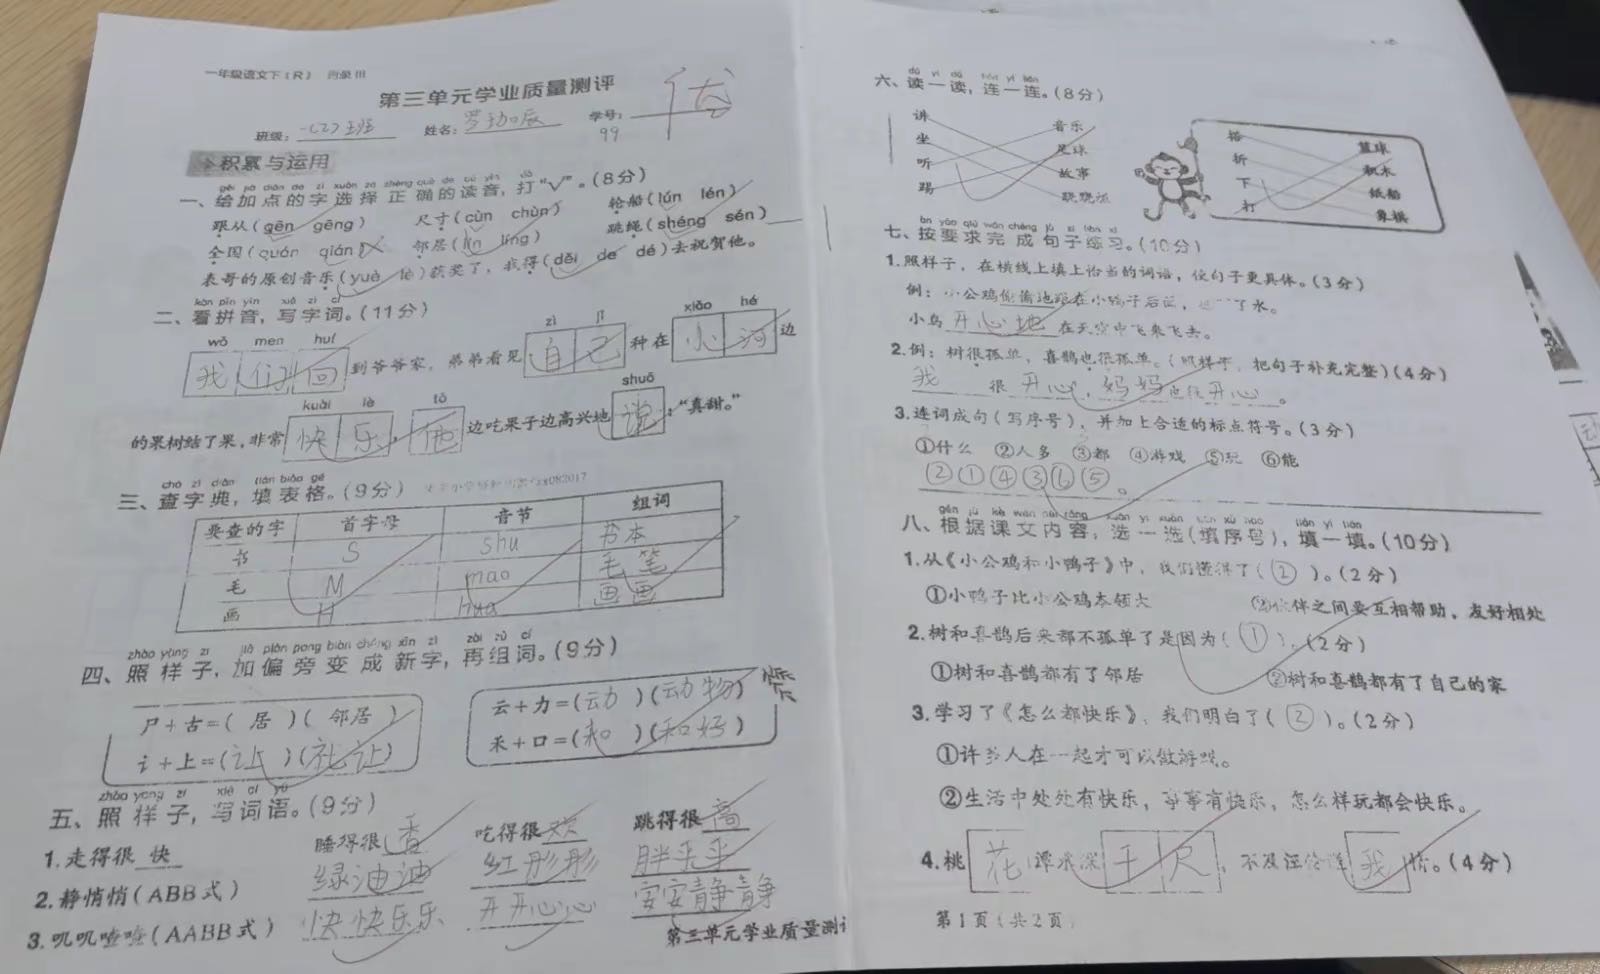 一年级语文下(R)
第三单元学业质量测评
优
班级：一(2)班 姓名： 学号：
99
积累与运用
gěi jiā diǎn de zì xuǎn zé zhèng què de dú yīn dǎ
一、给加点的字选择正确的读音，打“√”。(8分)
跟从(gēn gēng) 尺寸(cùn chùn) 轮船(lún lén)
全国(quán qián) 邻居(lín líng) 跳绳(shéng sén)
表哥的原创音乐(yuè lè)获奖了，我得(děi de dé)去祝贺他。
kàn pīn yīn xiě zì cí
二、看拼音，写字词。(11分)
wǒ men huí zì jǐ xiǎo hé
我们回到爷爷家，弟弟看见自己种在小河边
kuài lè tā shuō
的果树结了果，非常快乐，他边吃果子边高兴地说：“真甜。”
chá zì diǎn tián biǎo gé
三、查字典，填表格。(9分)
要查的字 首字母 音节 组词
书 S shu 书本
毛 M mao 毛笔
画 H hua 画画
zhào yàng zi jiā piān páng biàn chéng xīn zì zài zǔ cí
四、照样子，加偏旁变成新字，再组词。(9分)
尸+古=(居)(邻居) 云+力=(动)(动物)
讠+上=(让)(礼让) 禾+口=(和)(和好)
zhào yàng zi xiě cí yǔ
五、照样子，写词语。(9分)
1.走得很快 睡得很香 吃得很欢 跳得很高
2.静悄悄(ABB式) 绿油油 红彤彤 胖乎乎
3.叽叽喳喳(AABB式) 快快乐乐 开开心心 安安静静
第三单元学业质量测
dú yi dú lián yi lián
六、读一读，连一连。(8分)
讲 音乐 搭 篮球
坐 足球 折 积木
听 故事 下 纸船
踢 跷跷板 打 象棋
àn yāo qiú wán chéng jù zi liàn xí
七、按要求完成句子练习。(10分)
1.照样子，在横线上填上恰当的词语，使句子更具体。(3分)
例：小公鸡偷偷地跟在小鸭子后面，了水。
小鸟开心地在天空中飞来飞去。
2.例：树很孤单，喜鹊也很孤单。(照样子，把句子补充完整)(4分)
我很开心，妈妈也很开心。
3.连词成句(写序号)，并加上合适的标点符号。(3分)
①什么 ②人多 ③都 ④游戏 ⑤玩 ⑥能
②①④③⑥⑤。
gēn jù kè wén nèi róng xuǎn yi xuǎn tián xù hào tián yi tián
八、根据课文内容，选一选(填序号)，填一填。(10分)
1.从《小公鸡和小鸭子》中，我们懂得了(②)。(2分)
①小鸭子比小公鸡本领大 ②伙伴之间要互相帮助，友好相处
2.树和喜鹊后来都不孤单了是因为(①)。(2分)
①树和喜鹊都有了邻居 ②树和喜鹊都有了自己的家
3.学习了《怎么都快乐》，我们明白了(②)。(2分)
①许多人在一起才可以做游戏。
②生活中处处有快乐，事事有快乐，怎么样玩都会快乐。
4.桃花潭水深千尺，不及汪伦送我情。(4分)
第1页(共2页)